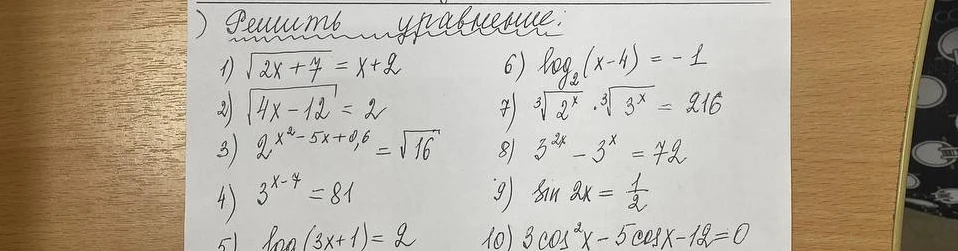 ) Решить уравнение:
1) √2x+7 = x+2
2) √4x-12 = 2
3) 2^(x²-5x+0,6) = √16
4) 3^(x-7) = 81
5) log (3x+1) = 2
6) log₂(x-4) = -1
7) ³√2ˣ · ³√3ˣ = 216
8) 3²ˣ - 3ˣ = 72
9) sin 2x = 1/2
10) 3cos²x - 5cosx - 12 = 0